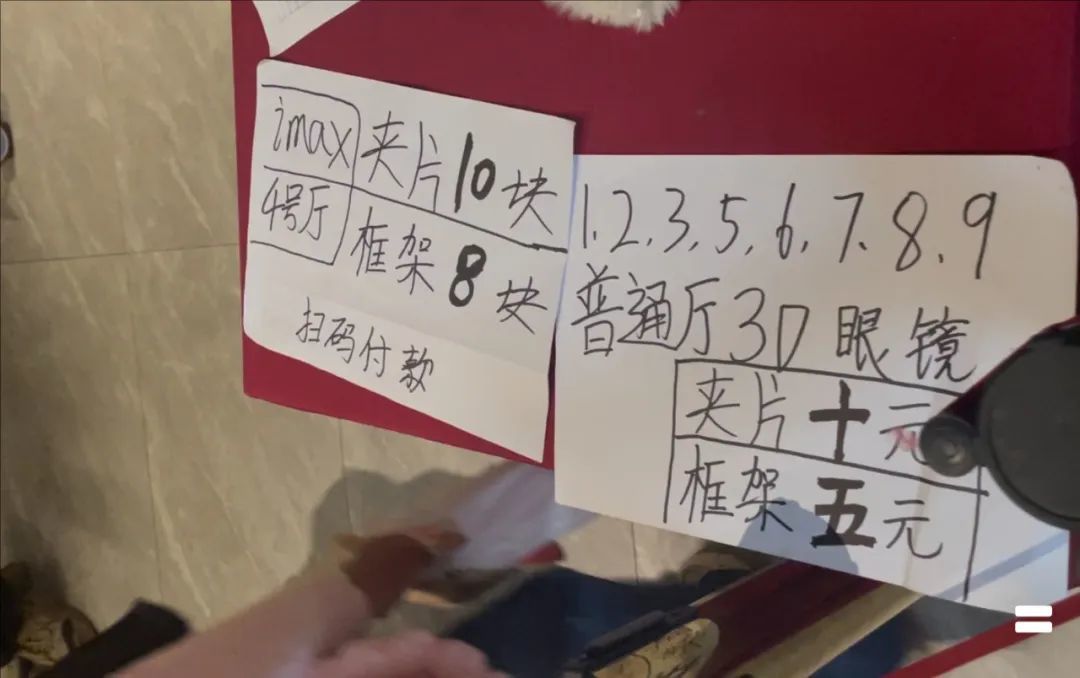 imax 夹片10块
4号厅 框架8块
扫码付款
1.2.3.5.6.7.8.9
普通厅3D眼镜
夹片十元
框架五元